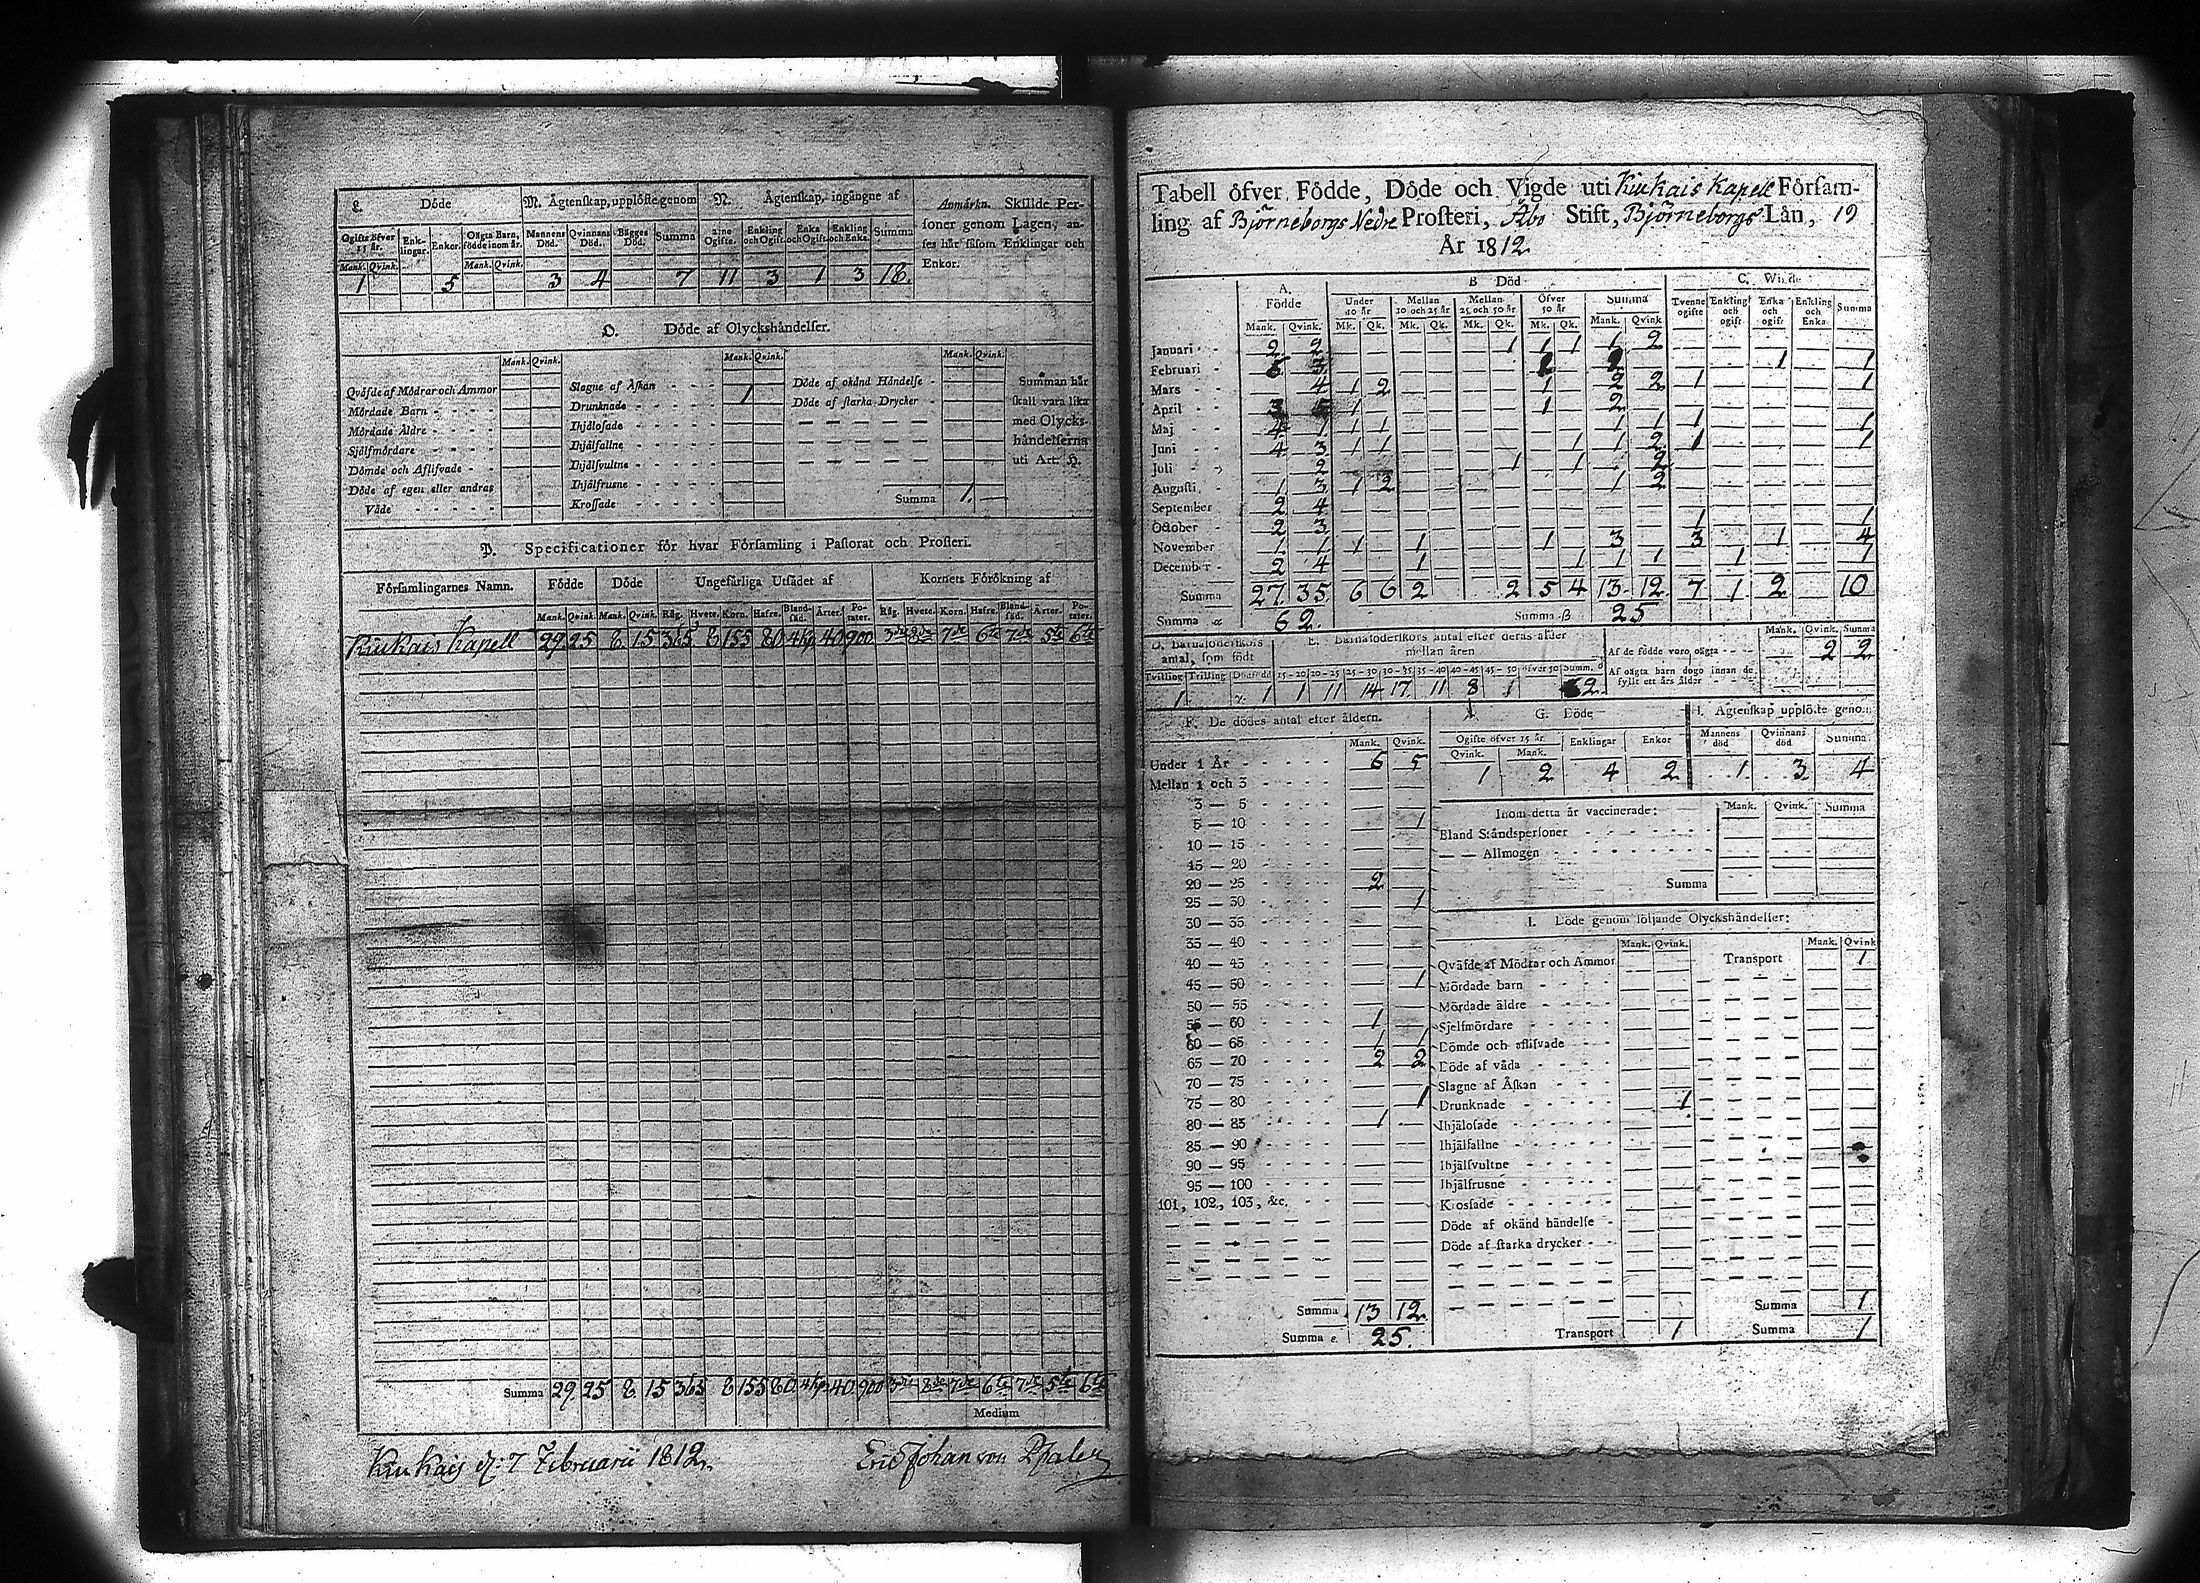 L. Döde M. Ägtenskap, upplöste genom N. Ägtenskap, ingångne af Anmärkn. Skillde Per-
soner genom Lagen, an-
ses här såsom Enklingar och
Enkor.
Ogifte öfver 15 år. Enk-lingar. Enkor. Oägta Barn, födde inom år. Mannens Död. Qvinnans Död. Bägges Död. Summa Ogifte. Enkling och Ogift. Enka och Ogift Enkling och Enka. Summa
Mank. Qvink. Mank. Qvink.
1 5 3 4 7 11 3 1 3 18.
O. Döde af Olyckshändelser.
Mank. Qvink. Mank. Qvink. Mank. Qvink.
Qväfde af Mödrar och Ammor Slagne af Åskan Döde af okänd Händelse Summan här
Mördade Barn Drunknade 1 Döde af starka Drycker skall vara lika
Mördade Äldre Ihjälosade med Olycks-
Sjelfmördare Ihjälfallne händelserna
Dömde och Aflifvade Ihjälsvultne uti Art. H.
Döde af egen eller andras Ihjälfrusne
Våde Krossade Summa 1.
P. Specificationer för hvar Församling i Pastorat och Prosteri.
Församlingarnes Namn. Födde Döde Ungefärliga Utsädet af Kornets Förökning af
Mank. Qvink. Mank. Qvink. Råg. Hvete. Korn. Hafre. Bland-säd. Ärter. Po-tater. Råg. Hvete. Korn. Hafre. Bland-säd. Ärter. Po-tater.
Kiukais Kapell 29 25 8 15 365 8 155 80 40 900
Summa 29 25 8 15 365 8 155 80 40 900
Medium
Kiukais d: 7 Februarii 1812. Eric Johan von Pfaler
Tabell öfver Födde, Döde och Vigde uti Kiukais Kapell Försam-
ling af Björneborgs Nedre Prosteri, Åbo Stift, Björneborgs Län, 19
År 1812.
A. Födde B Död C. Wigde
Under 10 år Mellan 10 och 25 år Mellan 25 och 50 år Öfver 50 år Summa Tvenne ogifte Enkling och ogift Enka och ogift Enkling och Enka Summa
Mank. Qvink. Mk. Qk. Mk. Qk. Mk. Qk. Mk. Qk. Mank. Qvink
Januari 2 2 1 1 1 1 2
Februari 3 2 2 1 1
Mars 4 1 2 1 2 2 1 1
April 3 1 1 2
Maj 4 1 1 1 1 1 1 1
Juni 4 3 1 1 1 1 2 1 1
Juli 2 1 1 2
Augusti 1 3 1 2 1 2
September 2 4
October 2 3 1 1
November 1 1 1 1 1 3 3 1 4
December 2 4 1 1 1 1 1 1
Summa 27. 35. 6 6 2 2 5 4 13. 12. 7 1 2 10
Summa α 62. Summa β 25
D. Barnaföderskors antal, som födt E. Barnaföderskors antal efter deras ålder mellan åren Mank. Qvink. Summa
Af de födde voro oägta 2 2
Tvilling Trilling Dödfödd 15-20 20-25 25-30 30-35 35-40 40-45 45-50 öfver 50 Summ. δ Af oägta barn dogo innan de
fyllt ett års ålder
1 1 1 11 14 17 11 8 1 62.
F. De dödes antal efter åldern. G. Döde H. Ägtenskap upplöste genom
Mank. Qvink. Ogifte öfver 15 år Enklingar Enkor Mannens död Qvinnans död Summa
Qvink. Mank.
Under 1 År 6 5 1 2 4 2 1 3 4
Mellan 1 och 3
3 — 5 Inom detta år vaccinerade: Mank. Qvink. Summa
5 — 10 1 Bland Ståndspersoner
10 — 15 — — Allmogen
15 — 20
20 — 25 2 Summa
25 — 30 1
30 — 35 I. Döde genom följande Olyckshändelser:
35 — 40 Mank. Qvink. Mank. Qvink
40 — 45 Qväfde af Mödrar och Ammor Transport 1
45 — 50 1 Mördade barn
50 — 55 Mördade äldre
55 — 60 1 Sjelfmördare
60 — 65 1 1 Dömde och aflifvade
65 — 70 2 2 Döde af våda
70 — 75 Slagne af Åskan
75 — 80 1 Drunknade 1
80 — 85 1 Ihjälosade
85 — 90 Ihjälfallne
90 — 95 Ihjälsvultne
95 — 100 Ihjälfrusne
101, 102, 103, &c. Krossade
Döde af okänd händelse
Döde af starka drycker
Summa 13 12. Summa 1
Summa ε. 25. Transport 1 Summa 1